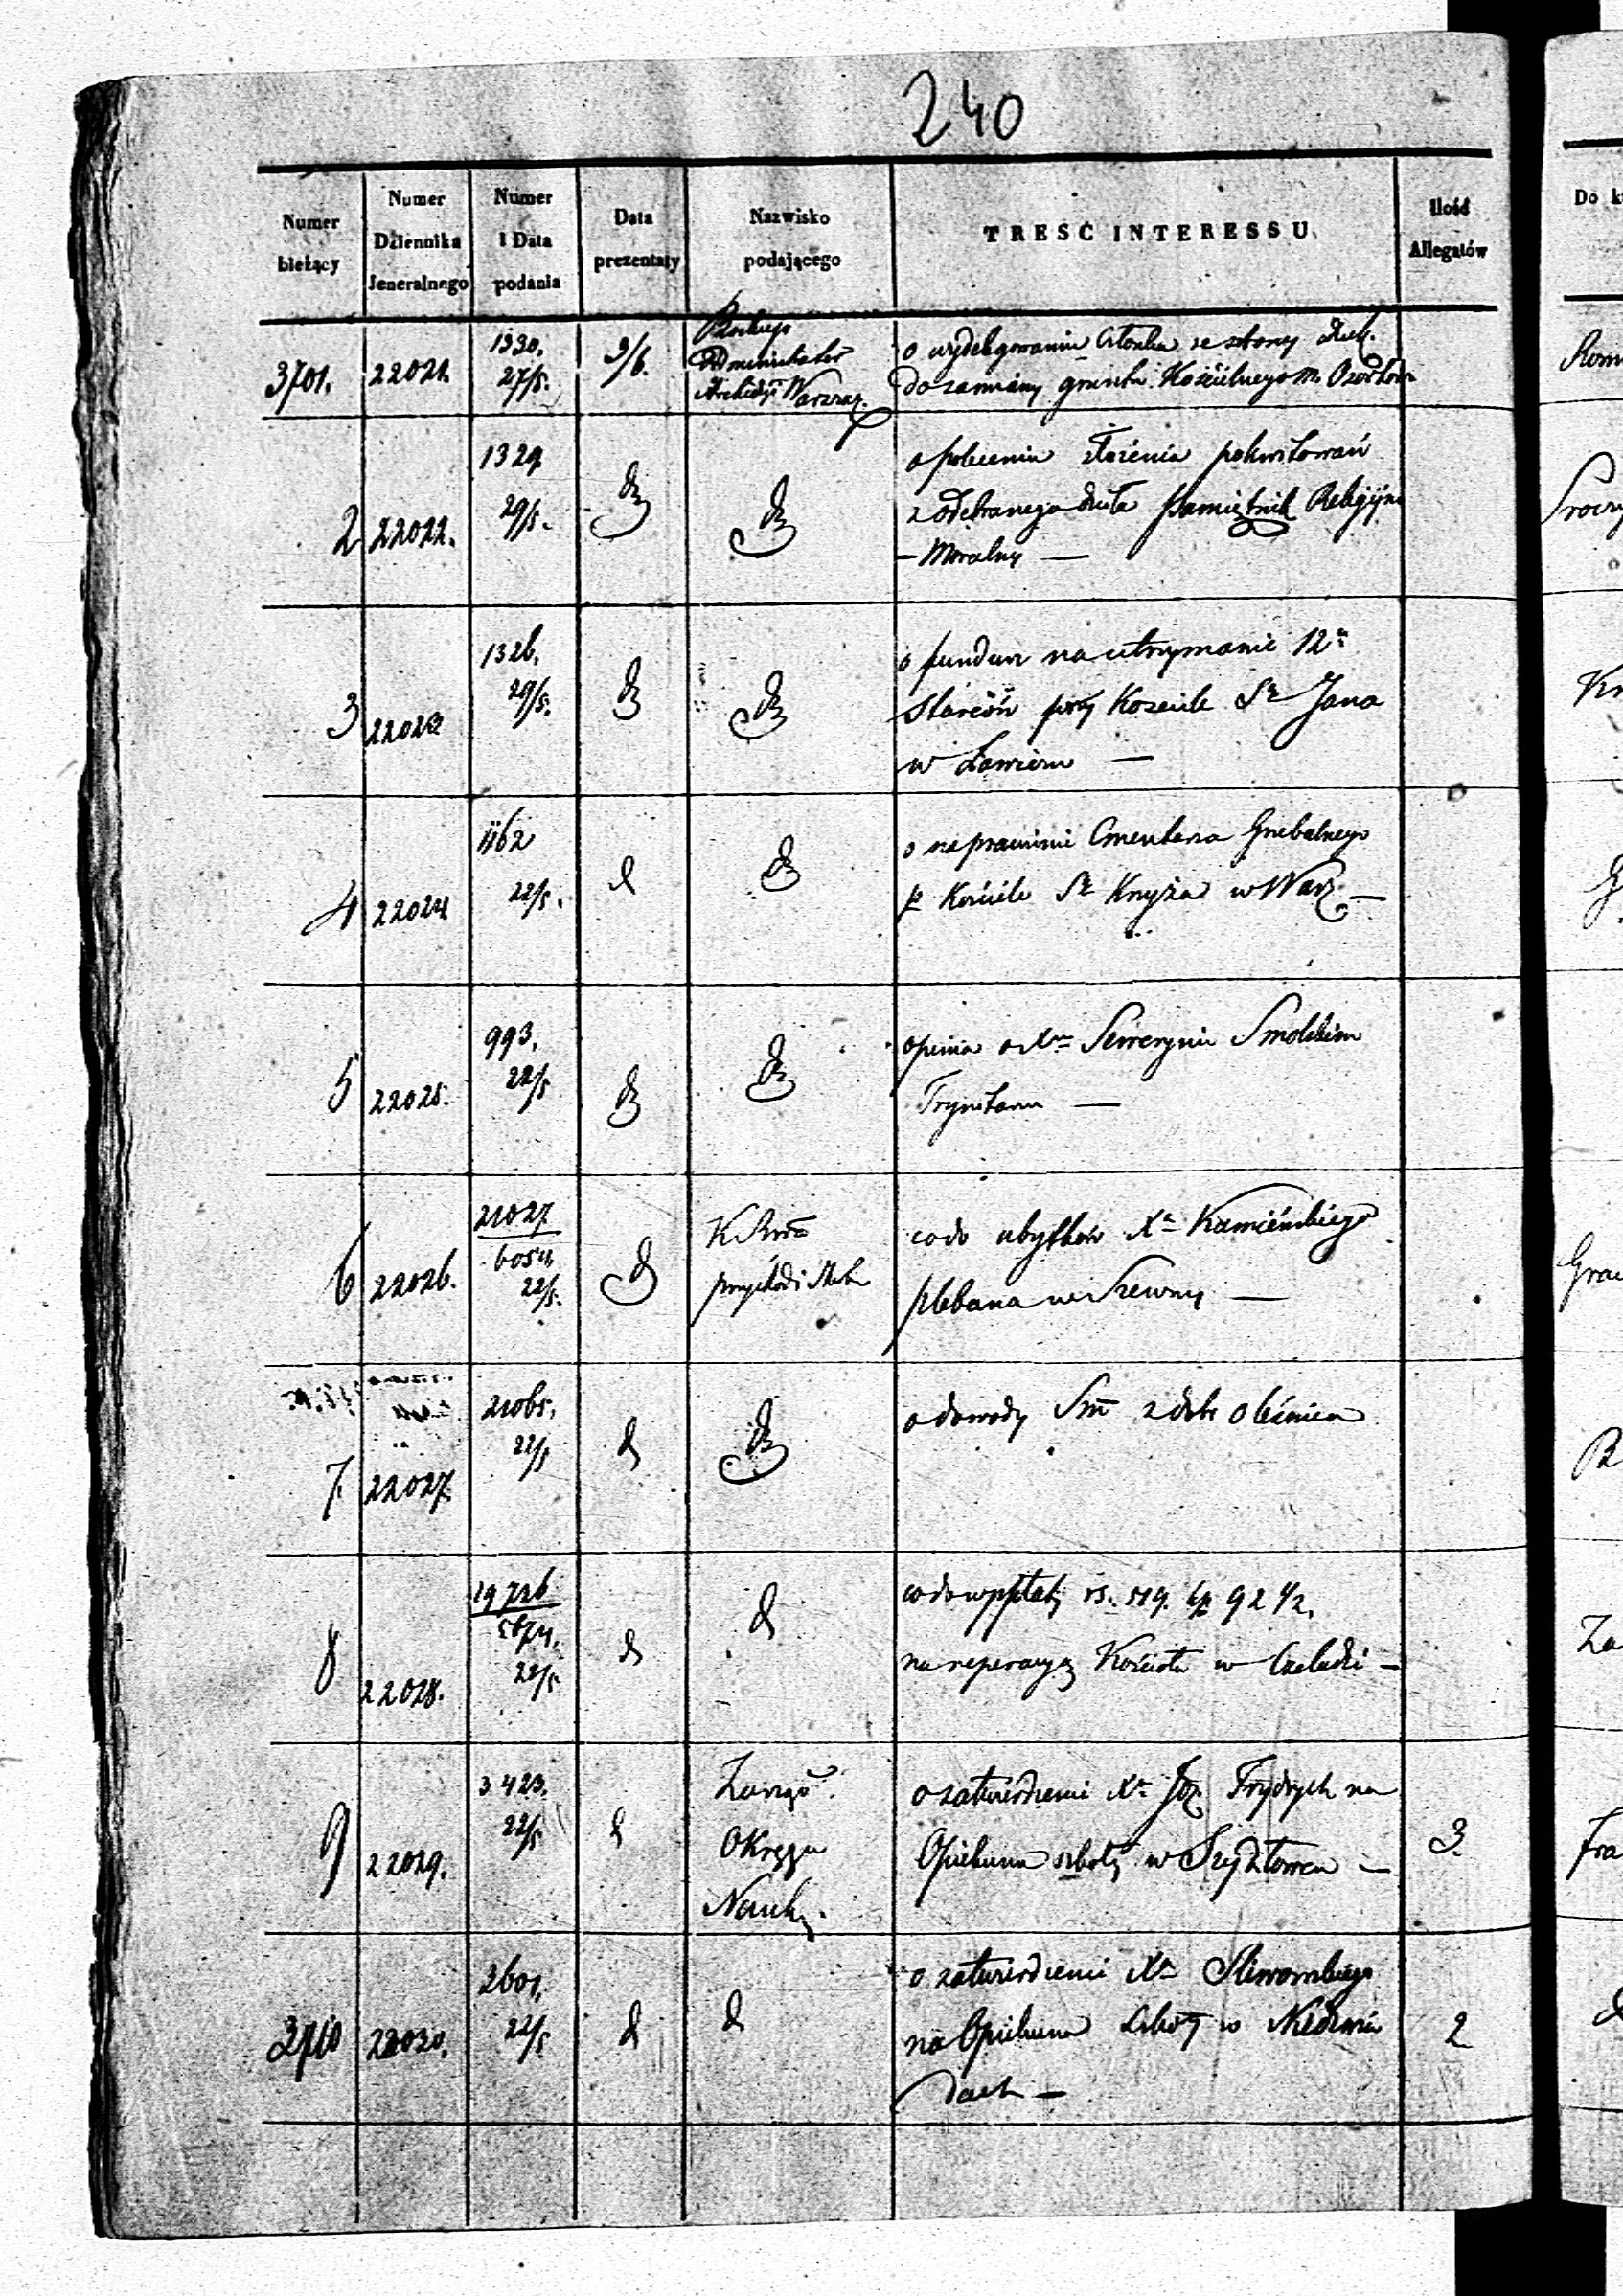 240
Numer bieżący
Numer Dziennika Jeneralnego
Numer i Data podania
Data prezentaty
Nazwisko podającego
TRESC INTERESSU
Ilość Allegatów
Do k
3701. 22021. 1330. 27/5. 9/6. Administrator Archidyi Warszaw.
o wydelegowanie Członka ze strony
do zamiany gruntu Kościelnego m. Ozorkow
2 22022. 1329 29/5.
o polecenie złożenia pokwitowań
z odebranego dzieła Pamiętnik Religijno
– Moralny —
3 22023 1326. 29/5.
o fundusz na utrzymanie 12
starców przy Kościele Sº Jana
w Łowiczu —
4 22024 1162 22/5.
o naprawienie Cmentarza Grzebalnego
p Kościele Sº Krzyża w Warz —
5 22025. 993. 22/5
opinia o Xdzu Sewerynie Smolskim
Trynitarzu —
6 22026. 21027 6054 22/5.
przychodi Skarbu
co do ubytków Xa Kamieńskiego
plebana w Szewny —
7. 22027. 21065. 22/5
o dowody z dóbr Oleśnica
8 22028. 19726 5674. 22/5
co do wypłaty rs. 519. kp 92 1/2.
na reperacyę Kościoła w Czeladzi –
9 22029. 3423. 22/5
Zarząd
Okręgu
Nauk.
o zatwierdzenie Xa Joz. Frydrych na
Opiekuna szkoły w Szydłowcu —
3.
3710 22030. 2601. 22/5
o zatwierdzenie Xa Sliwowskiego
na Opiekuna Szkoły w Niedźwia
dach —
2